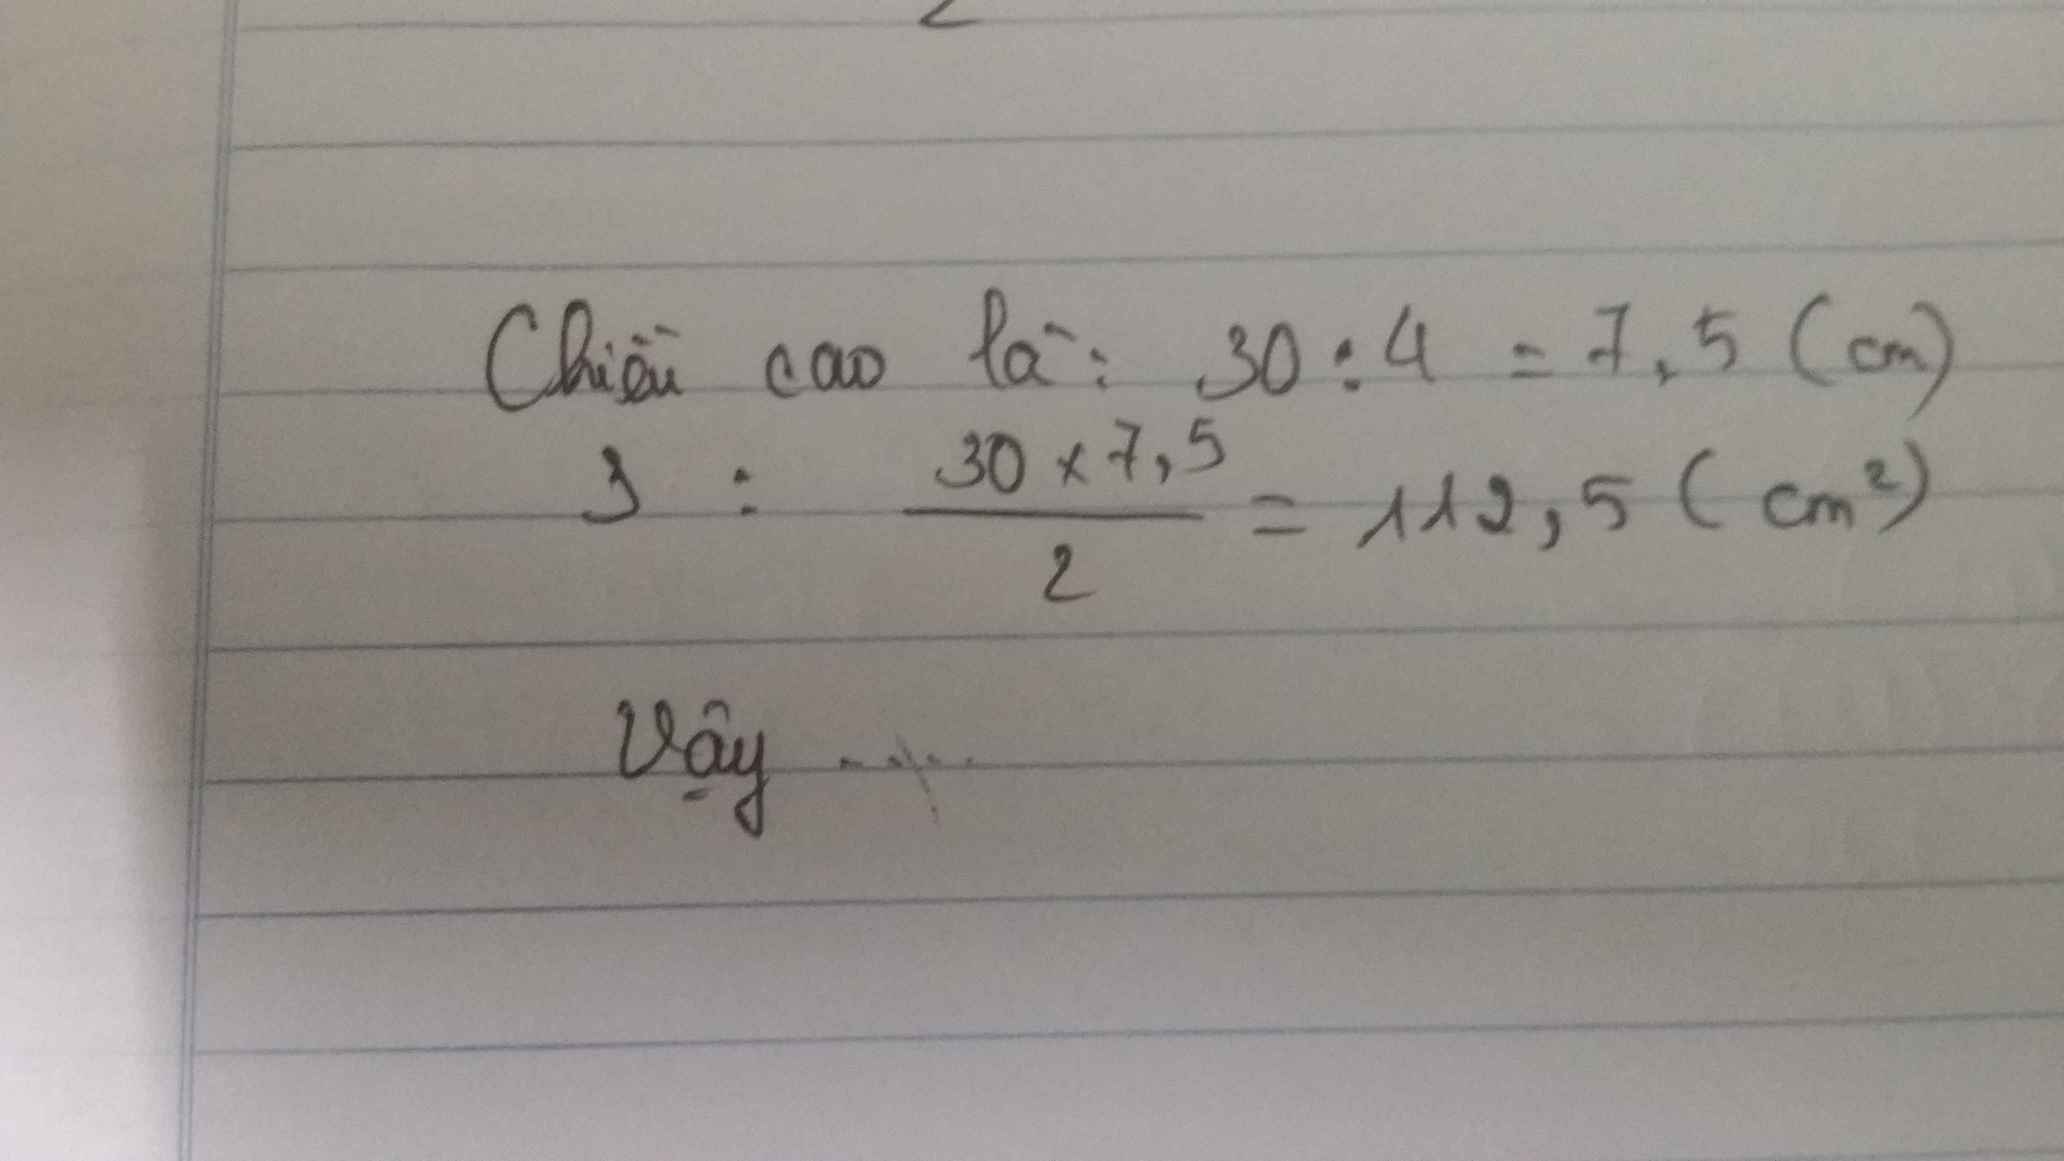 2
Chiều cao là: 30 : 4 = 7,5 (cm)
S : 30 x 7,5 / 2 = 112,5 (cm²)
Vậy .....